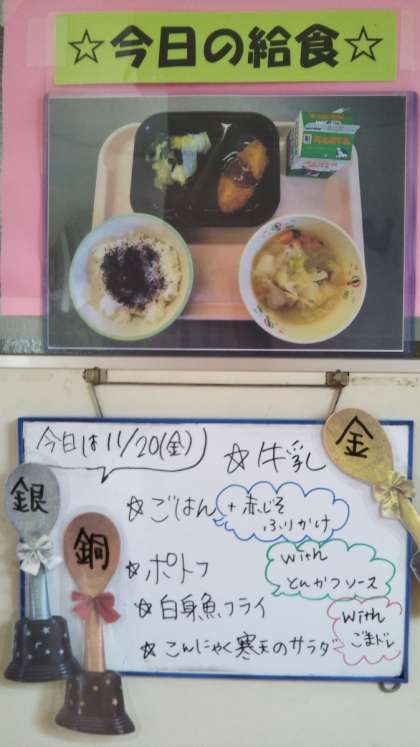 ☆今日の給食☆
今日は11/20(金)
☆牛乳
☆ごはん
+赤じそ
ふりかけ
☆ポトフ
☆白身魚フライ
with
とんかつソース
☆こんにゃく寒天のサラダ
with
ごまドレ
金
銀
銅